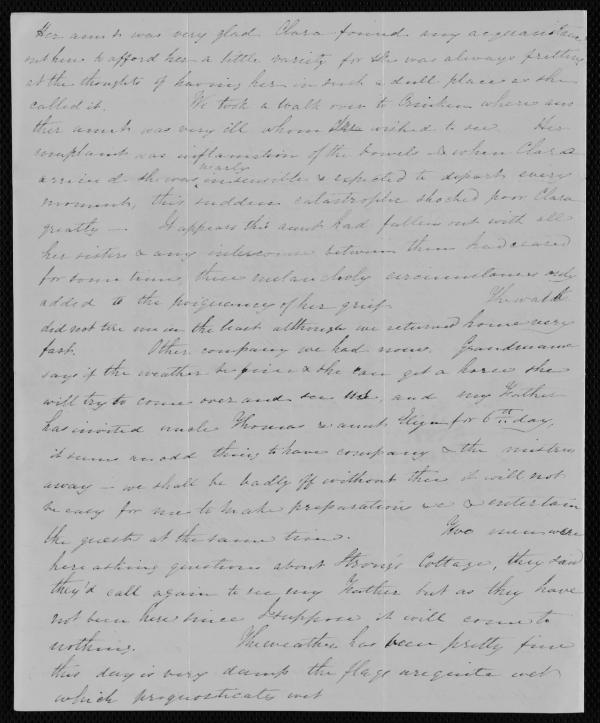 Her aunt was very glad Clara found any acquaintance
out here to afford her a little variety for she was always fretting
at the thoughts of having her in such a dull place as she
called it. We took a walk over to Crinken where an
ther aunt was very ill whom she wished to see. Her
complaint was inflamation of the bowels & when Clara
arrived she was nearly insensible & expected to depart every
moment, this sudden catastrophe shocked poor Clara
greatly — It appears this aunt had fallen out with all
her sisters & any intercourse between them had ceased
for some time, these melancholy circumstances only
added to the poignancy of her grief The walk
did not tire me in the least although we returned home very
fast. Other company we had none. Grandmama
says if the weather be fine & she can get a horse she
will try to come over and see me, and my Father
has invited uncle Thomas & aunt Eliza for 6th day,
it seems an odd thing to have company & the mistress
away — we shall be badly off without thee it will not
be easy for me to make preparation &c & entertain
the guests at the same time. Two men were
here asking questions about Strong's Cottage, they said
they'd call again to see my Father but as they have
not been here since I suppose it will come to
nothing. The weather has been pretty fine
this day is very damp the flags are quite wet
which prognosticates wet